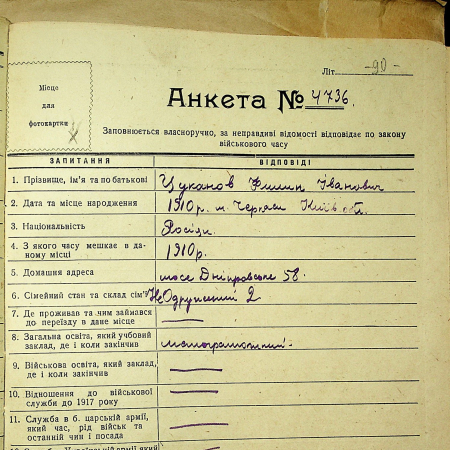 Літ. -90-
Місце
для
фотокартки
Анкета № 4736.
Заповнюється власноручно, за неправдиві відомості відповідає по закону
військового часу
ЗАПИТАННЯ ВІДПОВІДІ
1. Прізвище, ім'я та по батькові Цуканов Филип Іванович
2. Дата та місце народження 1910 р. м. Черкаси Київ. обл.
3. Національність Росіян.
4. З якого часу мешкає в даному місці 1910 р.
5. Домашня адреса шосе Дніпровське 58
6. Сімейний стан та склад сім'ї Не Одружений 2
7. Де проживав та чим займався
до переїзду в дане місце
8. Загальна освіта, який учбовий
заклад, де і коли закінчив малограмотний.
9. Військова освіта, який заклад,
де і коли закінчив
10. Відношення до військової
служби до 1917 року
11. Служба в б. царській армії,
який час, рід військ та
останній чин і посада